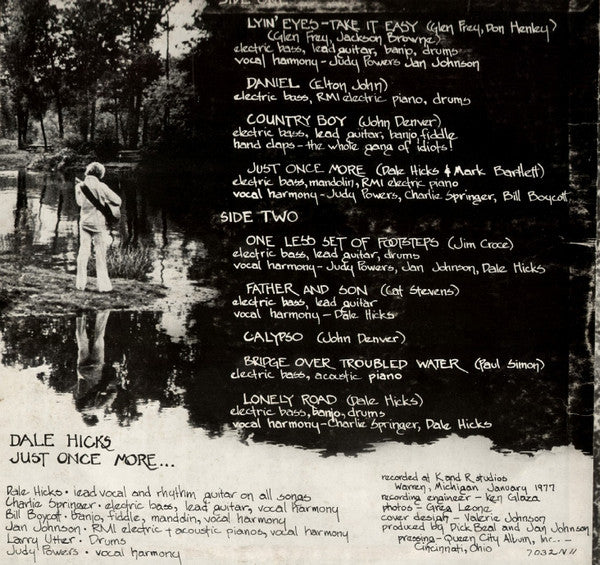 LYIN' EYES-TAKE IT EASY (Glen Frey, Don Henley)
(Glen Frey, Jackson Browne)
electric bass, lead guitar, banjo, drums
vocal harmony-Judy Powers Jan Johnson
DANIEL (Elton John)
electric bass, RMI electric piano, drums
COUNTRY BOY (John Denver)
electric bass, lead guitar, banjo, fiddle
hand claps-the whole gang of idiots!
JUST ONCE MORE (Dale Hicks & Mark Bartlett)
electric bass, mandolin, RMI electric piano
vocal harmony-Judy Powers, Charlie Springer, Bill Boycott
SIDE TWO
ONE LESS SET OF FOOTSTEPS (Jim Croce)
electric bass, lead guitar, drums
vocal harmony-Judy Powers, Jan Johnson, Dale Hicks
FATHER AND SON (Cat Stevens)
electric bass, lead guitar
vocal harmony-Dale Hicks
CALYPSO (John Denver)
BRIDGE OVER TROUBLED WATER (Paul Simon)
electric bass, acoustic piano
LONELY ROAD (Dale Hicks)
electric bass, banjo, drums
vocal harmony-Charlie Springer, Dale Hicks
DALE HICKS
JUST ONCE MORE...
Dale Hicks • lead vocal and rhythm guitar on all songs
Charlie Springer • electric bass, lead guitar, vocal harmony
Bill Boycott • banjo, fiddle, mandolin, vocal harmony
Jan Johnson • RMI electric + acoustic pianos, vocal harmony
Larry Utter • Drums
Judy Powers • vocal harmony
recorded at K and R studios
Warren, Michigan January 1977
recording engineer - Ken Glaza
photos - Greg Leone
cover design - Valerie Johnson
produced by Dick Beal and Jan Johnson
pressing - Queen City Album, Inc. -
Cincinnati, Ohio
7032 N 11